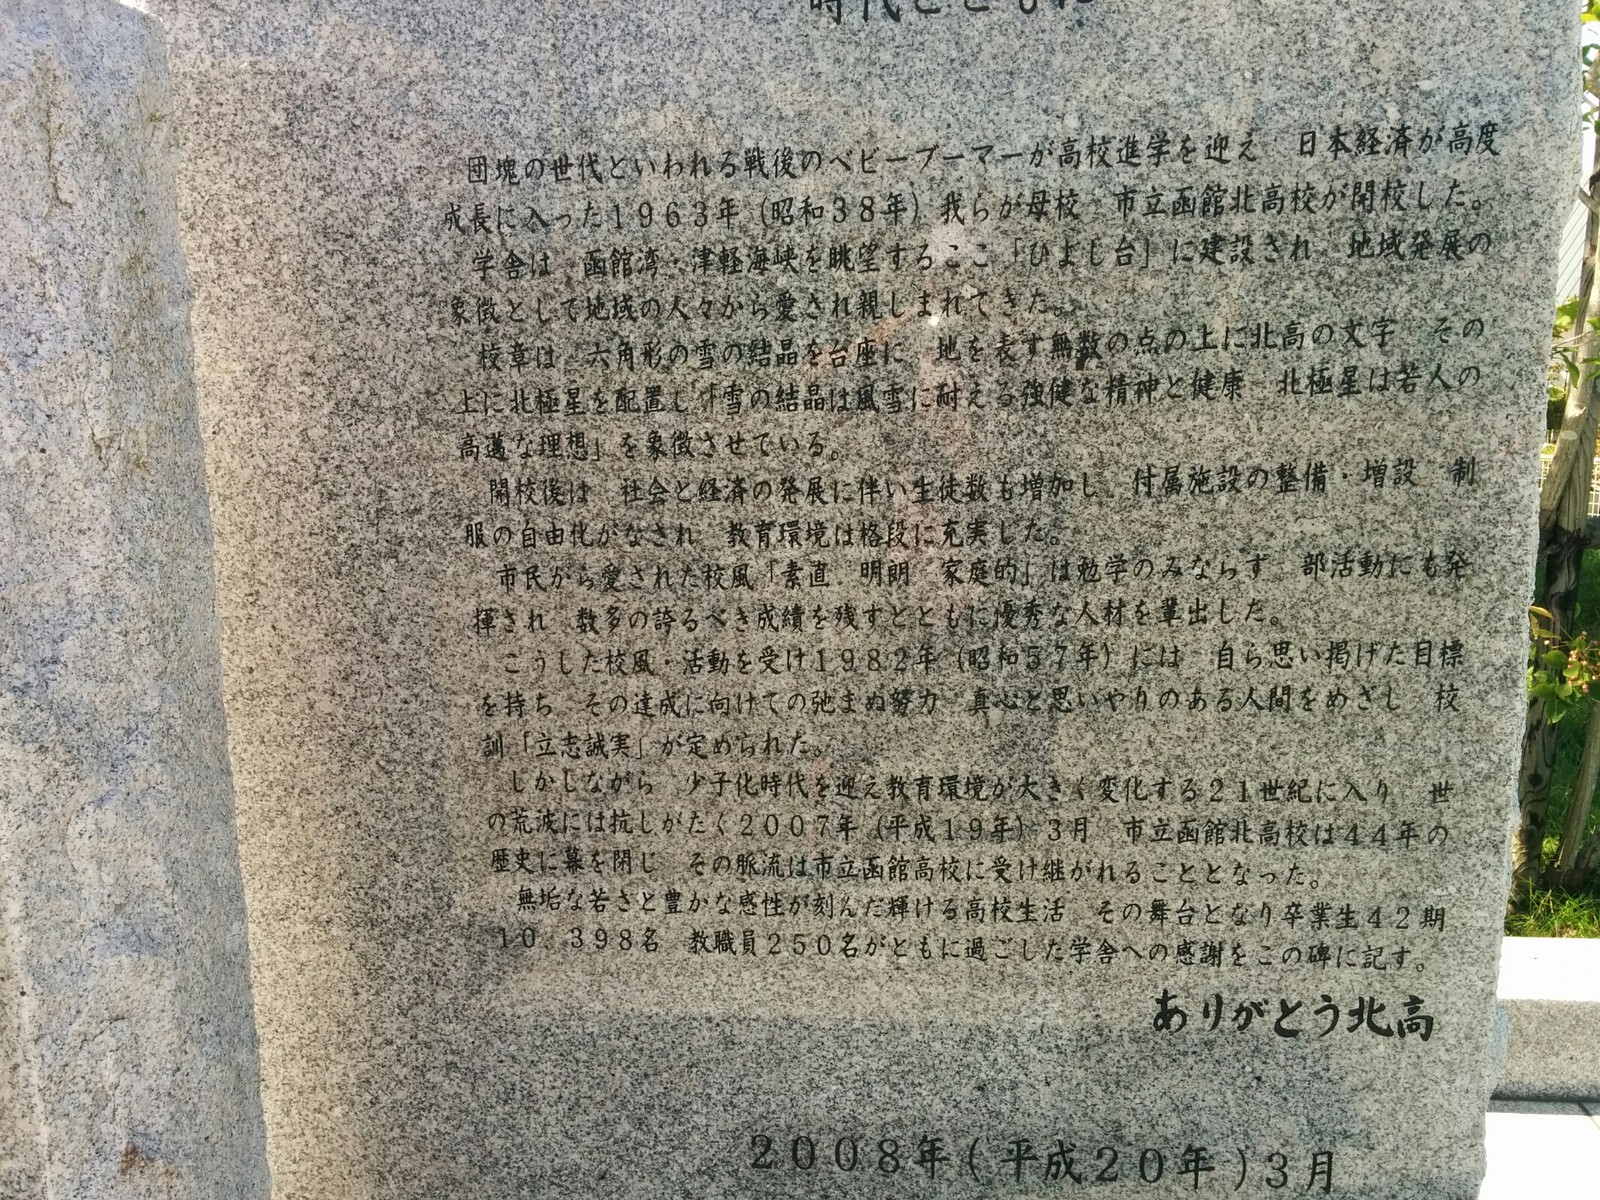 時代とともに
団塊の世代といわれる戦後のベビーブーマーが高校進学を迎え　日本経済が高度
成長に入った１９６３年（昭和３８年）我らが母校　市立函館北高校が開校した。
学舎は　函館湾・津軽海峡を眺望するここ「ひよし台」に建設され　地域発展の
象徴として地域の人々から愛され親しまれてきた。
校章は　六角形の雪の結晶を台座に　地を表す無数の点の上に北高の文字　その
上に北極星を配置し「雪の結晶は風雪に耐える強健な精神と健康　北極星は若人の
高邁な理想」を象徴させている。
開校後は　社会と経済の発展に伴い生徒数も増加し　付属施設の整備・増設　制
服の自由化がなされ　教育環境は格段に充実した。
市民から愛された校風「素直　明朗　家庭的」は勉学のみならず　部活動にも発
揮され　数多の誇るべき成績を残すとともに優秀な人材を輩出した。
こうした校風・活動を受け１９８２年（昭和５７年）には　自ら思い掲げた目標
を持ち　その達成に向けての弛まぬ努力　真心と思いやりのある人間をめざし　校
訓「立志誠実」が定められた。
しかしながら　少子化時代を迎え教育環境が大きく変化する２１世紀に入り　世
の荒波には抗しがたく２００７年（平成１９年）３月　市立函館北高校は４４年の
歴史に幕を閉じ　その脈流は市立函館高校に受け継がれることとなった。
無垢な若さと豊かな感性が刻んだ輝ける高校生活　その舞台となり卒業生４２期
１０，３９８名　教職員２５０名がともに過ごした学舎への感謝をこの碑に記す。
ありがとう北高
２００８年（平成２０年）３月